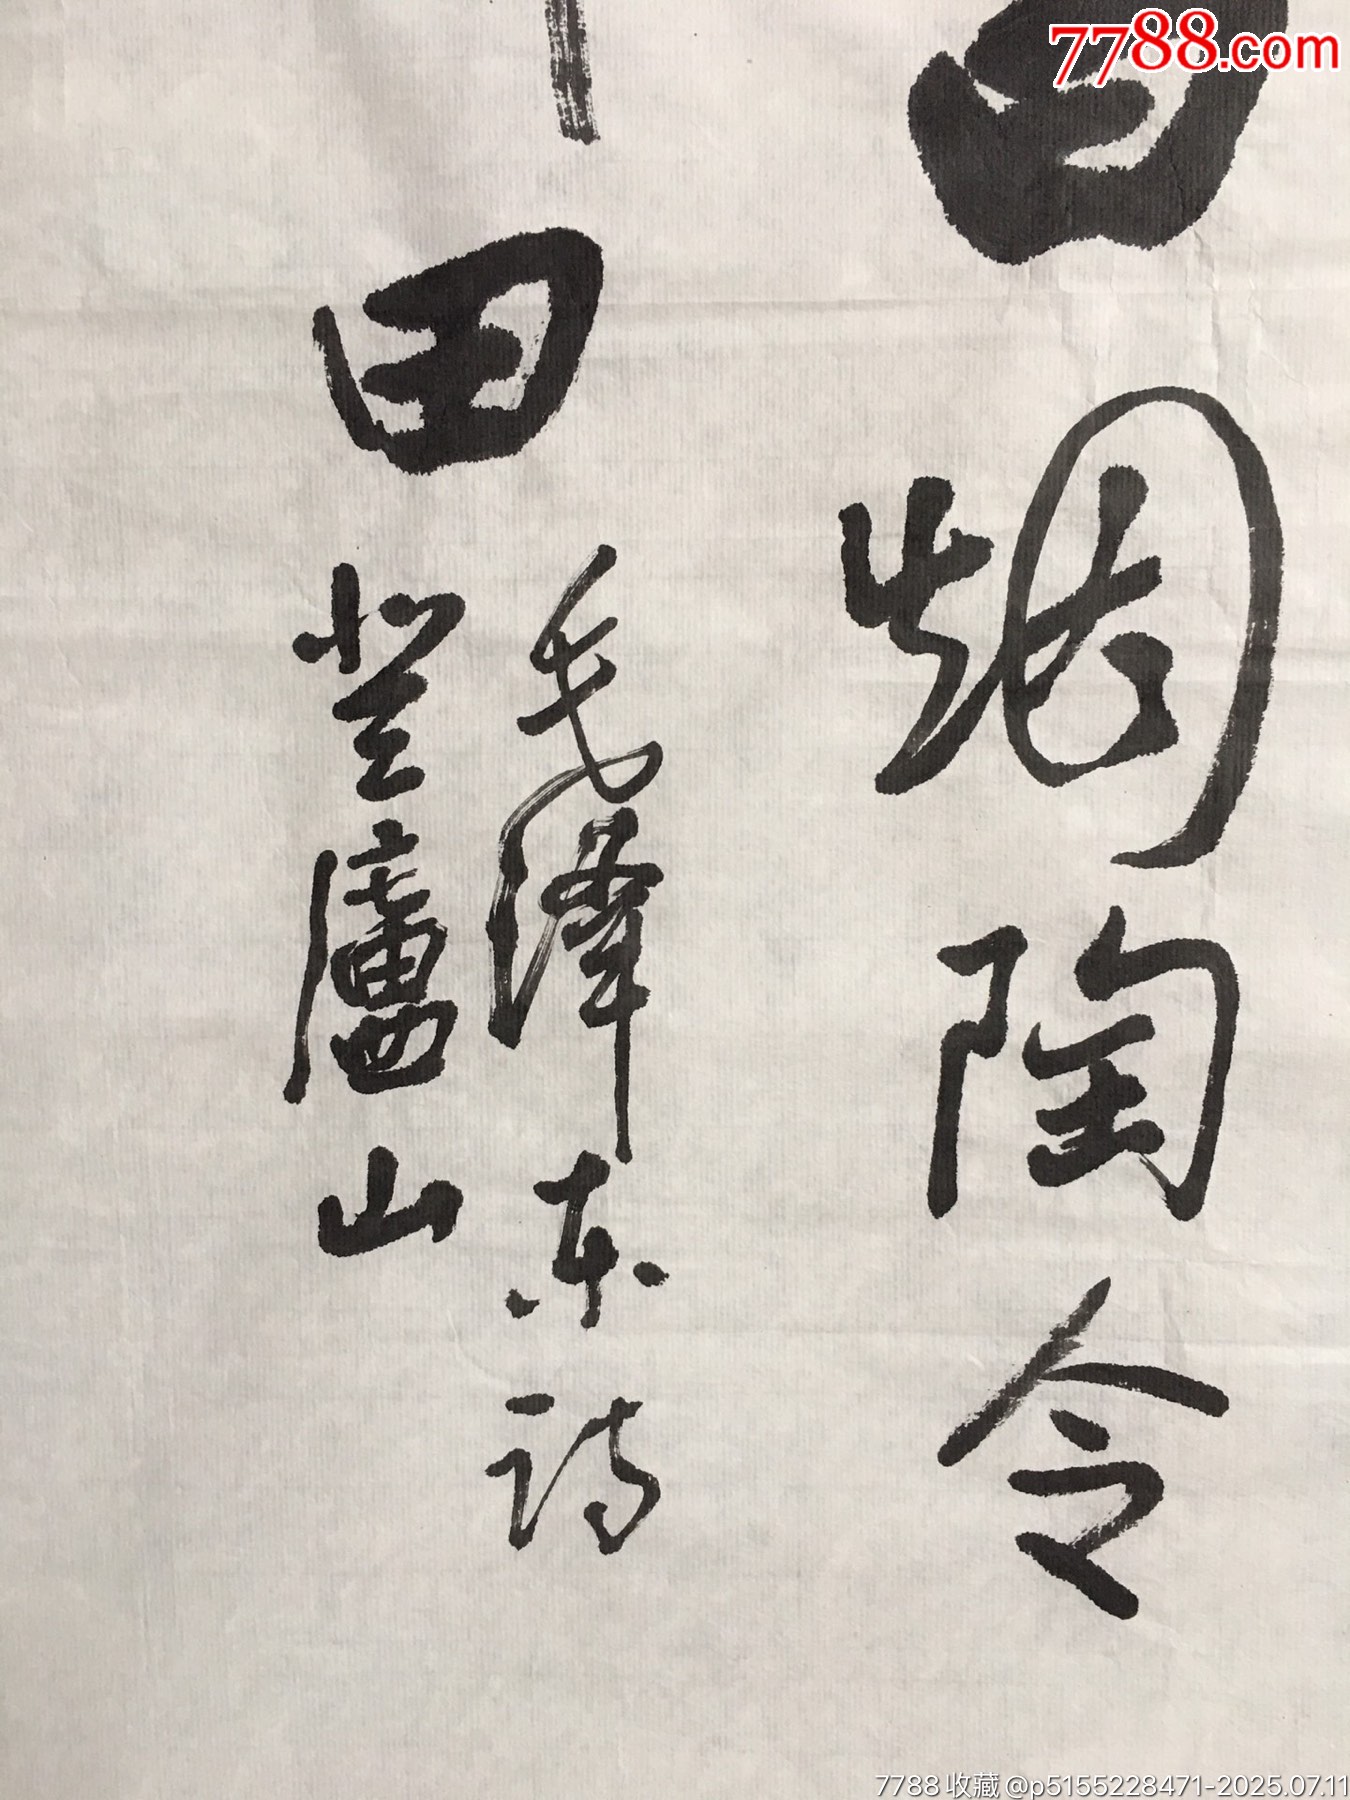 7788.com
白烟陶令
田
毛澤东诗
登廬山
7788收藏 @p5155228471-2025.07.11